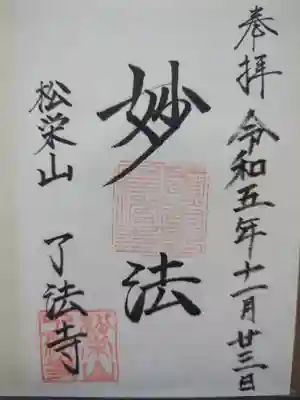 奉拝 令和五年十一月廿三日
妙法
松栄山 了法寺